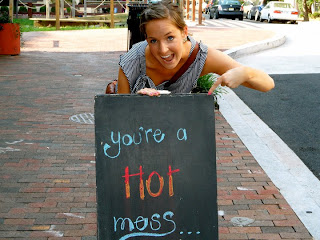 you're a
HoT
mess...